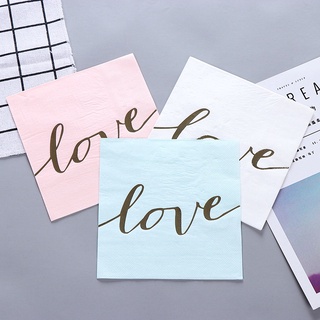 love
love
love
REA